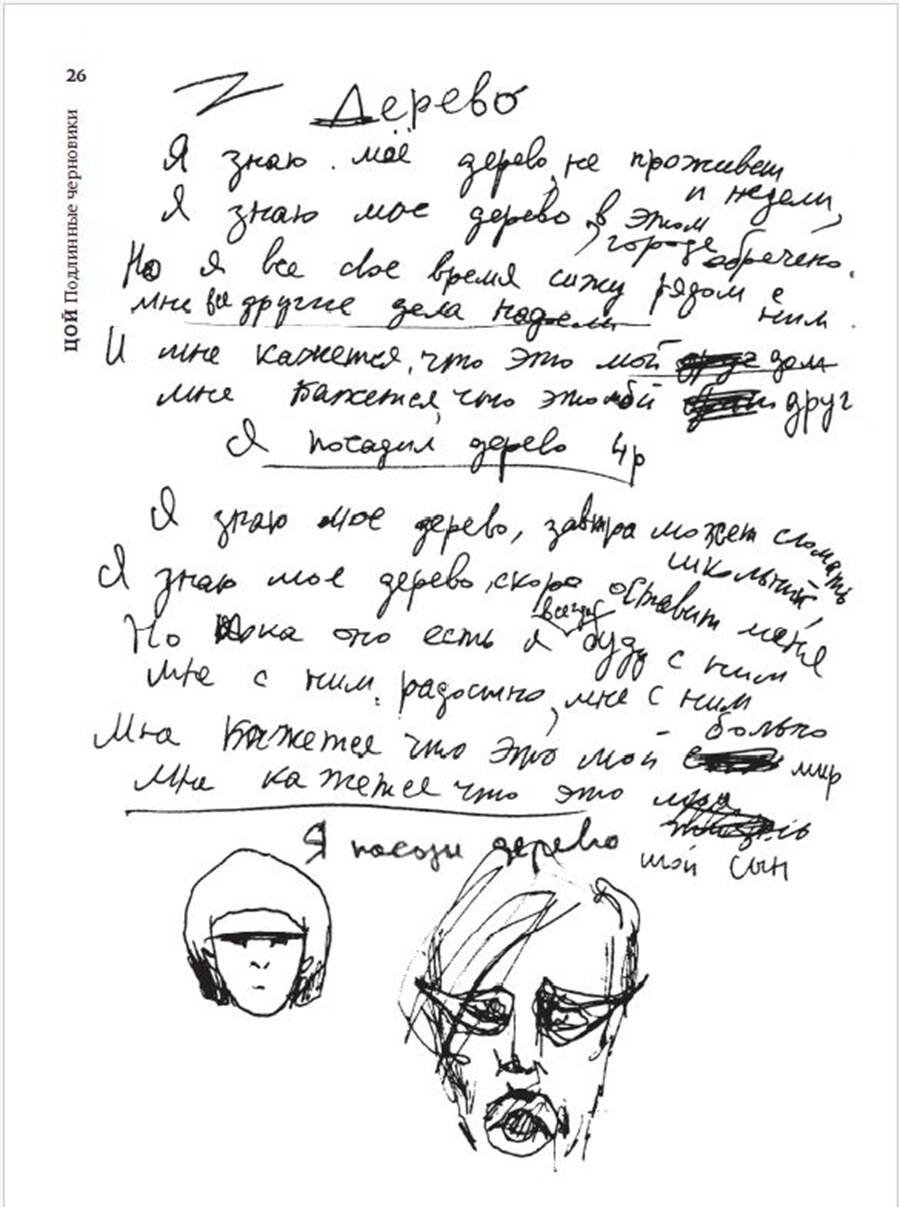 26
ЦОЙ Подлинные черновики
Дерево
Я знаю моё дерево, не проживет
и недели,
Я знаю мое дерево, в этом
городе обречено.
Но я все свое время сижу рядом с
ним
мне все другие дела надоели
И мне кажется, что это мой друг дом
мне кажется, что это мой друг
Я посадил дерево 4р
Я знаю мое дерево, завтра может сломать
школьник,
Я знаю мое дерево, скоро оставит меня
всегда
Но пока оно есть я буду с ним
Мне с ним радостно, мне с ним
больно
Мне кажется что это мой мир
Мне кажется что это мой
жизнь
мой сын
Я посади дерево